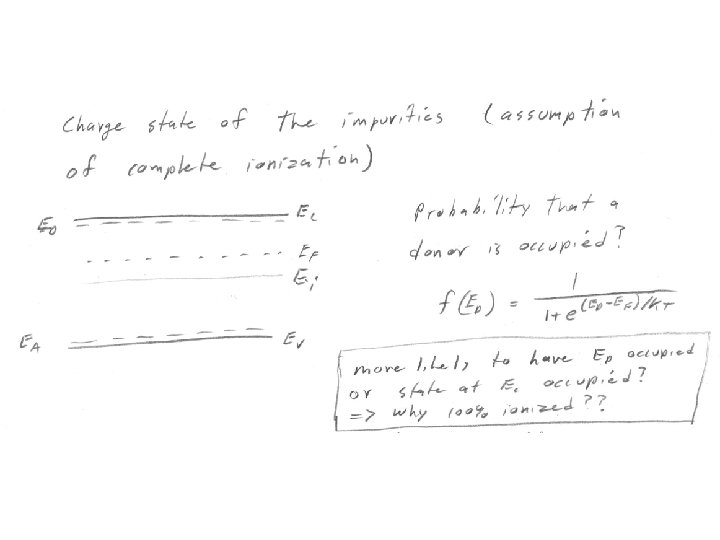 Charge state of the impurities (assumption
of complete ionization)
E_D E_c
E_F
E_i
E_A E_v
Probability that a
donor is occupied?
f(E_D) = 1 / 1+e^(E_D-E_F)/KT
more likely to have E_D occupied
or state at E_c occupied?
=> why 100% ionized??